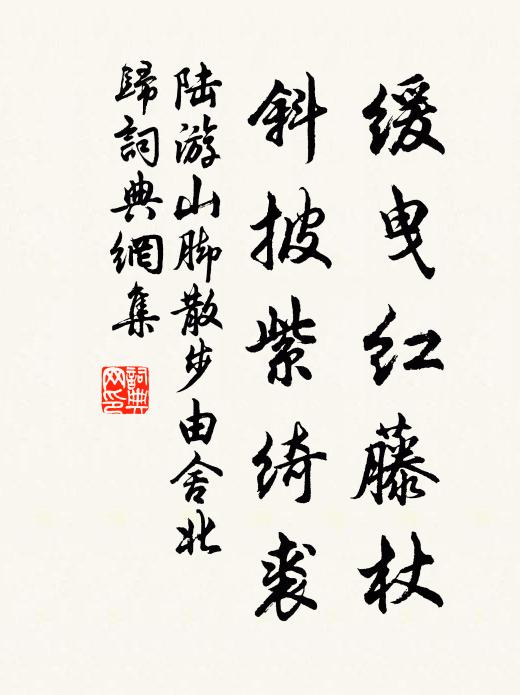 缓曳红藤杖
斜披紫绮裘
陆游山脚散步由舍北
歸詞典網集
詞典
网印